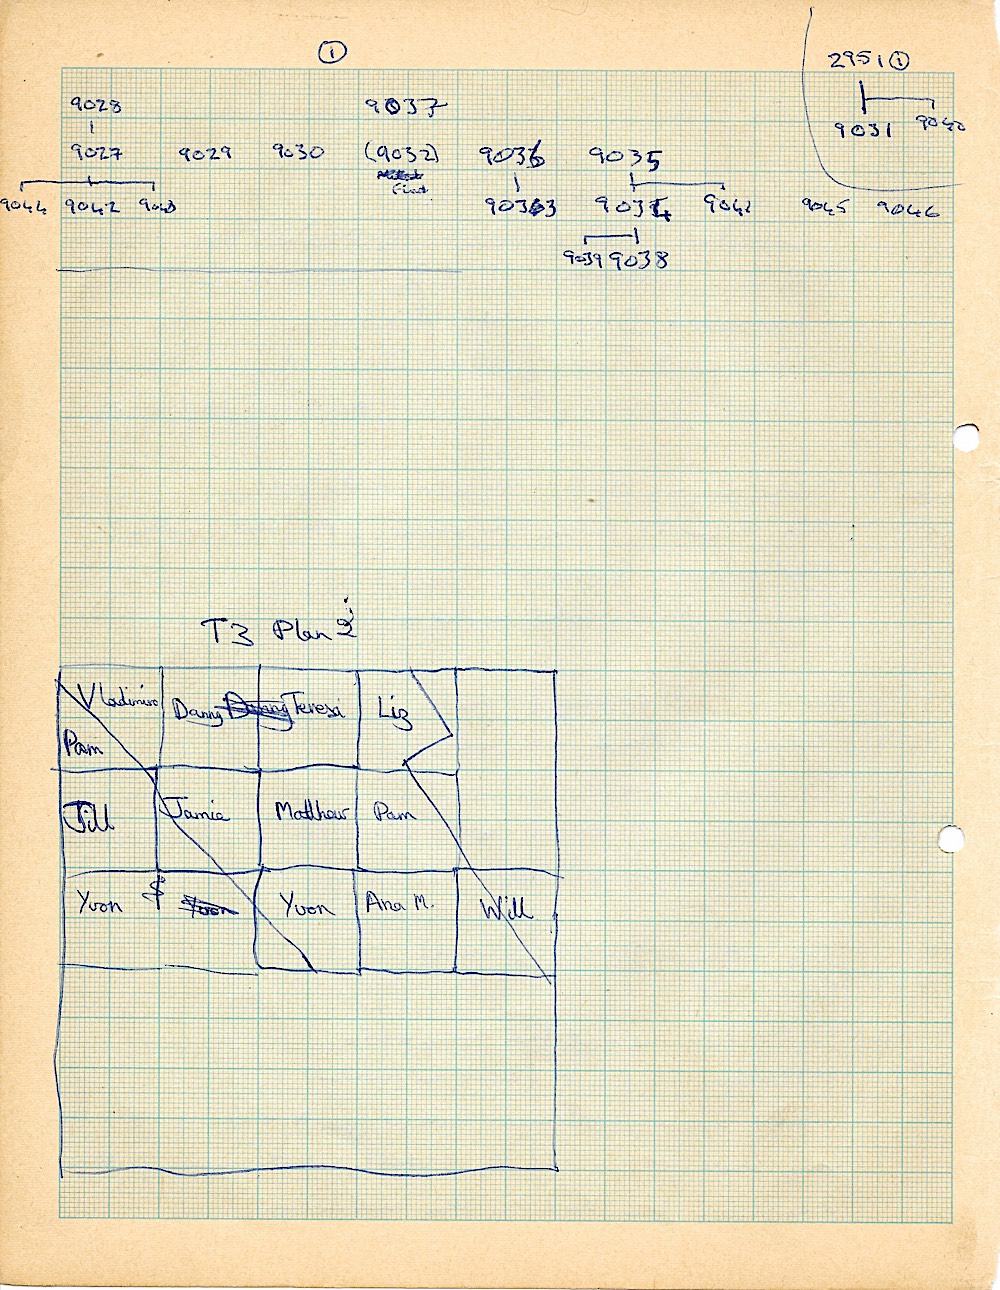 ①
2951 ①
9028 9037
9031 9040
9027 9029 9030 (9032) 9036 9035
9044 9042 9033 9034 9041 9045 9046
9039 9038
T3 Plan 2
Vladimiro Danny Teresa Liz
Pam
Jill Jamie Matthew Pam
Yvon $ Yvon Yvon Ana M. Will